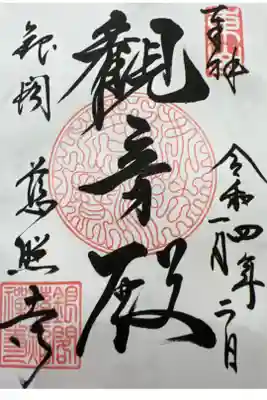 奉拝
令和四年一月二日
觀音殿
銀閣
慈照寺